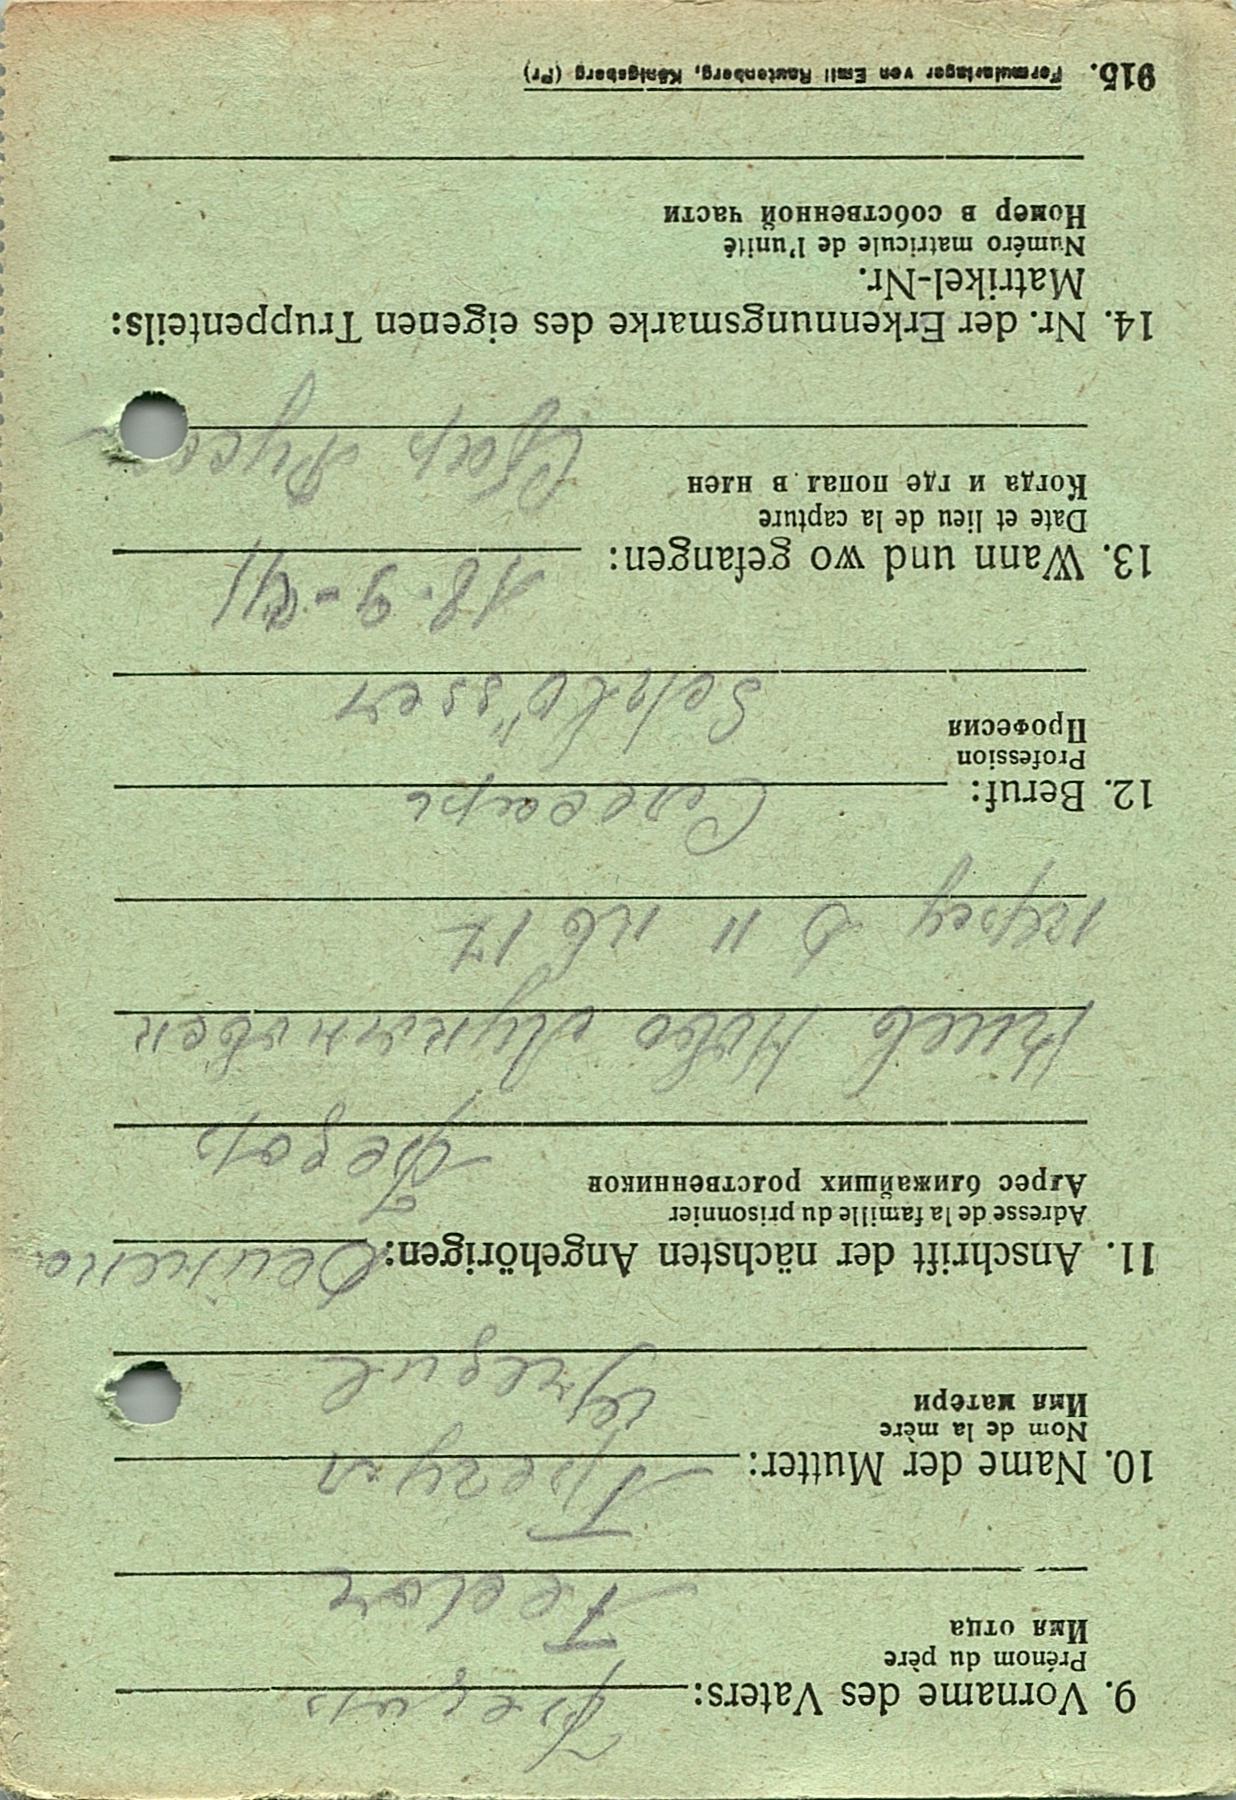 9. Vorname des Vaters:
Prénom du père
Имя отца
Федор
Feodor
10. Name der Mutter:
Nom de la mère
Имя матери
11. Anschrift der nächsten Angehörigen:
Adresse de la famille du prisonnier
Адрес ближайших родственников
Федор
Киев Ново
11 кв 17
12. Beruf:
Profession
Професия
Слесарь
Schlösser
13. Wann und wo gefangen:
Date et lieu de la capture
Когда и где попал в плен
18-9-41
14. Nr. der Erkennungsmarke des eigenen Truppenteils:
Matrikel-Nr.
Numéro matricule de l'unité
Номер в собственной части
915. Formularlager von Emil Rautenberg, Königsberg (Pr)